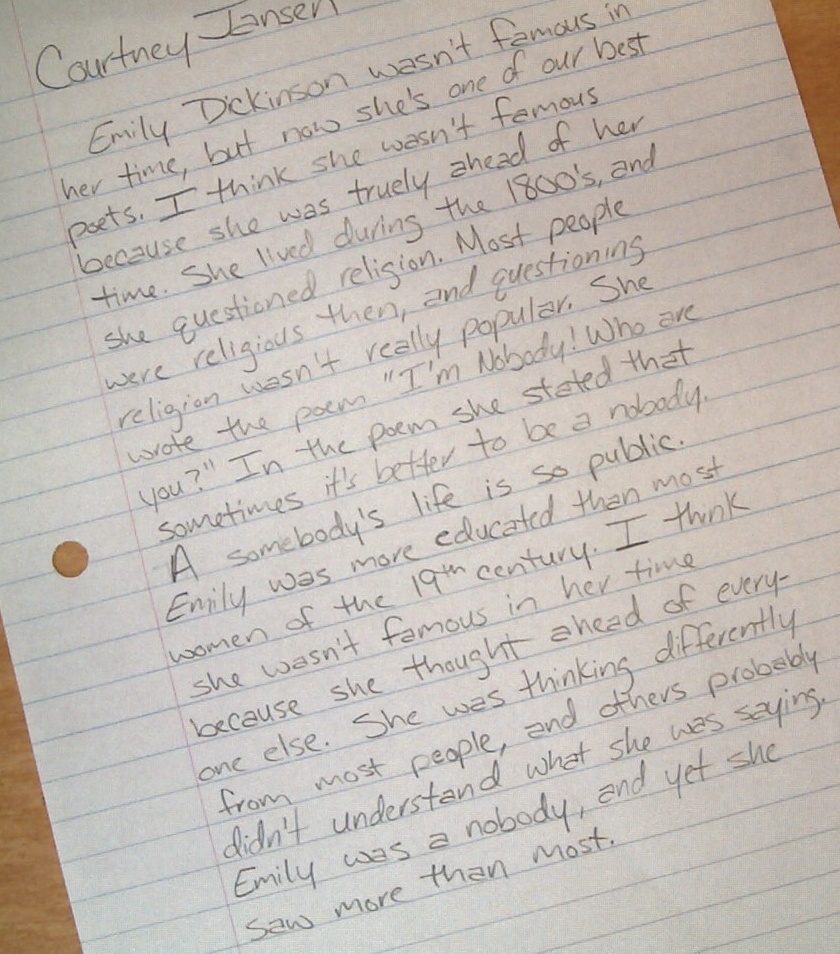 Courtney Jansen
Emily Dickinson wasn't famous in
her time, but now she's one of our best
poets. I think she wasn't famous
because she was truely ahead of her
time. She lived during the 1800's, and
she questioned religion. Most people
were religious then, and questioning
religion wasn't really popular. She
wrote the poem "I'm Nobody! Who are
you?" In the poem she stated that
sometimes it's better to be a nobody.
A somebody's life is so public.
Emily was more educated than most
women of the 19th century. I think
she wasn't famous in her time
because she thought ahead of every-
one else. She was thinking differently
from most people, and others probably
didn't understand what she was saying.
Emily was a nobody, and yet she
saw more than most.